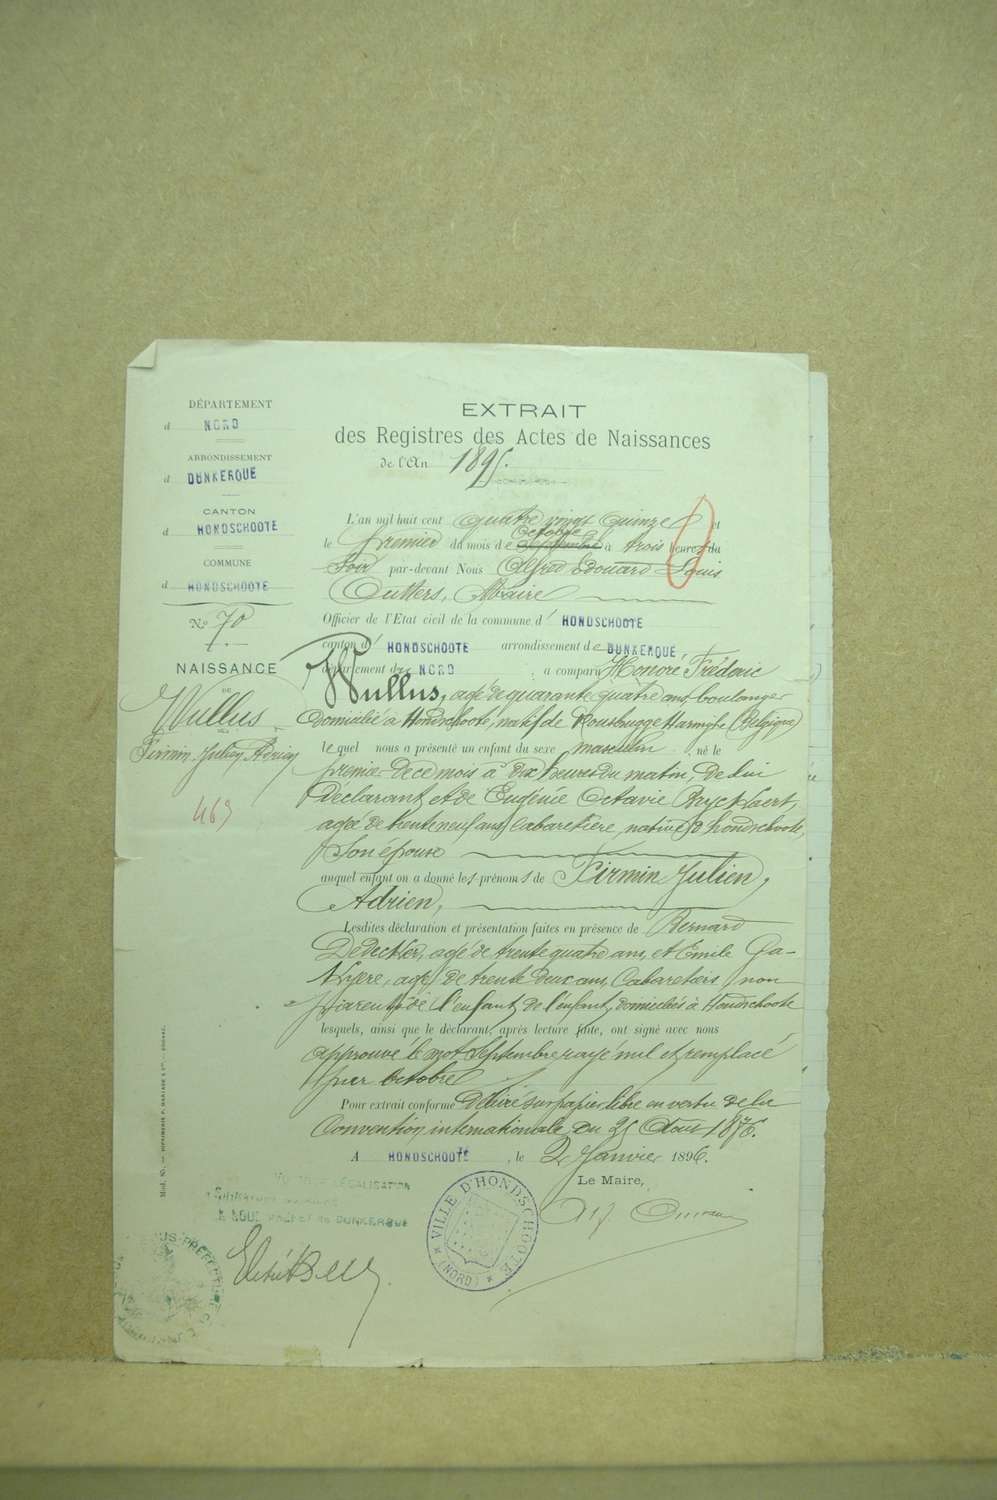 DÉPARTEMENT
d NORD
ARRONDISSEMENT
d DUNKERQUE
CANTON
d HONDSCHOOTE
COMMUNE
d HONDSCHOOTE
No 70
NAISSANCE
DE
Wullus
Firmin Julien Adrien
463
EXTRAIT
des Registres des Actes de Naissances
de l'An 1895.
L'an mil huit cent quatre vingt quinze et
le premier du mois de septembre octobre à trois heures du
soir par-devant Nous Alfred Edouard Louis
Outters, Maire
Officier de l'Etat civil de la commune d' HONDSCHOOTE
canton d' HONDSCHOOTE arrondissement de DUNKERQUE,
département du NORD, a comparu Honoré Fréderic
Wullus, agé de quarante quatre ans, boulanger
domicilié à Hondschoote, natif de Rousbrugge Haringhe (Belgique)
le quel nous a présenté un enfant du sexe masculin, né le
premier de ce mois à dix heures du matin, de lui
déclarant et de Eugénie Octavie Ryckelaert,
agée de trente neuf ans, cabaretière, native d'hondschoote,
son épouse
auquel enfant on a donné les prénoms de Firmin Julien,
Adrien,
Lesdites déclaration et présentation faites en présence de Bernard
Dedeckler, agé de trente quatre ans, et Emile
agé de trente deux ans, Cabaretiers, non
parents de l'enfant, de l'enfant, domiciliés à Hondschoote
lesquels, ainsi que le déclarant, après lecture faite, ont signé avec nous
approuvé le mot Septembre rayé nul et remplacé
par octobre
Pour extrait conforme Délivré sur papier libre en vertu de la
Convention internationale du 25 Aout 1876.
A HONDSCHOOTE, le 2 Janvier 1896.
Le Maire,
LÉGALISATION
SOUS PRÉFET de DUNKERQUE
VILLE D'HONDSCHOOTE
(NORD)